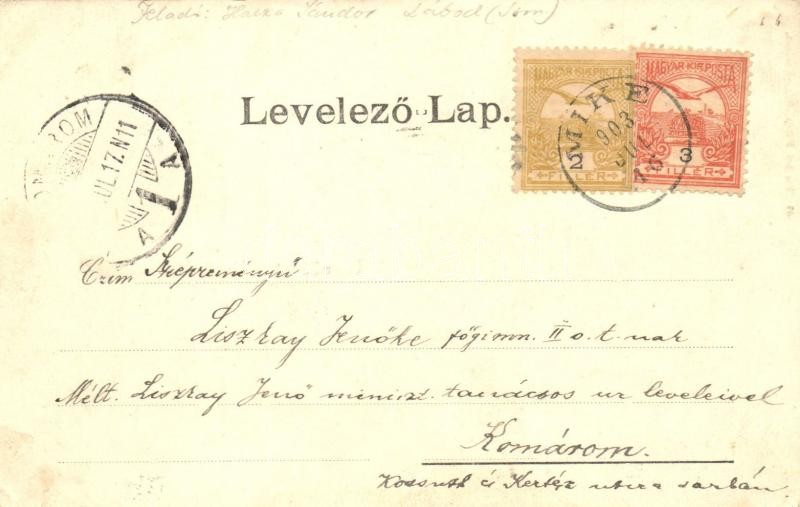 Feladó: Hacza Sándor Lábod (Som)
MAGYAR KIR. POSTA
MAGYAR KIR. POSTA
MIKE
903
JUL
16
2 FILLÉR
3 FILLÉR
Levelező-Lap.
KOMÁROM
JUL. 17. N11
A 1 A
Czím Szépreményű
Liszkay Jenőke főgimn. II o. t. nak
Mélt. Liszkay Jenő miniszt. tanácsos ur leveleivel
Komárom.
Kossuth és Kertész utcza sarkán